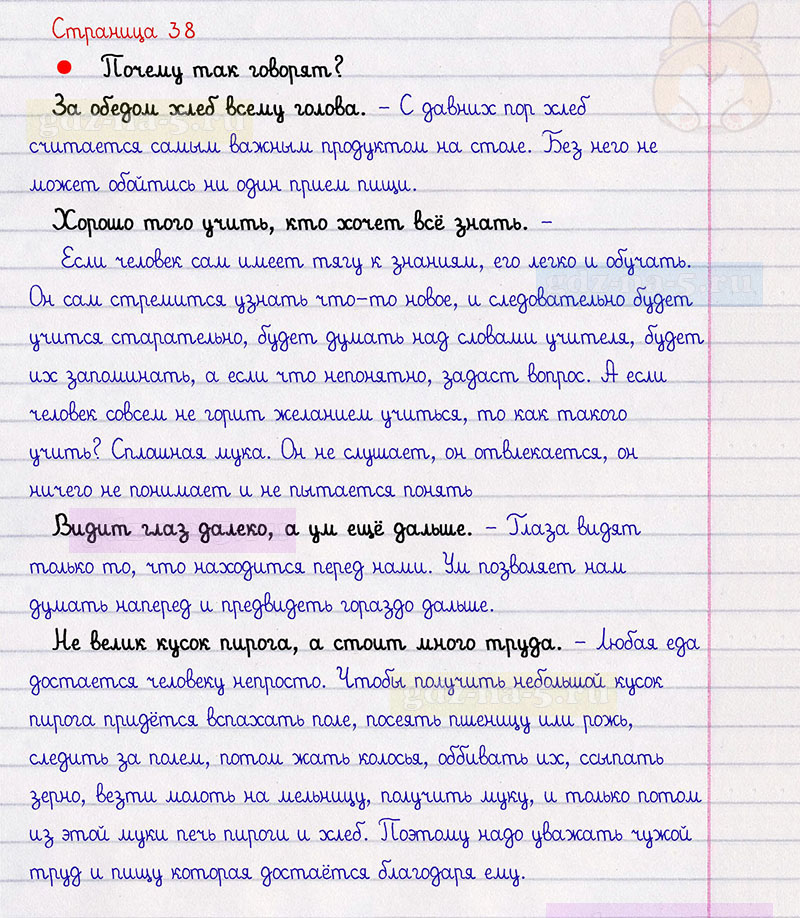 Страница 38
Почему так говорят?
За обедом хлеб всему голова. – С давних пор хлеб
считается самым важным продуктом на столе. Без него не
может обойтись ни один прием пищи.
Хорошо того учить, кто хочет всё знать. –
Если человек сам имеет тягу к знаниям, его легко и обучать.
Он сам стремится узнать что-то новое, и следовательно будет
учится старательно, будет думать над словами учителя, будет
их запоминать, а если что непонятно, задаст вопрос. А если
человек совсем не горит желанием учиться, то как такого
учить? Сплошная мука. Он не слушает, он отвлекается, он
ничего не понимает и не пытается понять
Видит глаз далеко, а ум ещё дальше. – Глаза видят
только то, что находится перед нами. Ум позволяет нам
думать наперед и предвидеть гораздо дальше.
Не велик кусок пирога, а стоит много труда. – Любая еда
достается человеку непросто. Чтобы получить небольшой кусок
пирога придётся вспахать поле, посеять пшеницу или рожь,
следить за полем, потом жать колосья, оббивать их, ссыпать
зерно, везти молоть на мельницу, получить муку, и только потом
из этой муки печь пироги и хлеб. Поэтому надо уважать чужой
труд и пищу которая достаётся благодаря ему.
gdz-na-5.ru
gdz-na-5.ru
gdz-na-5.ru